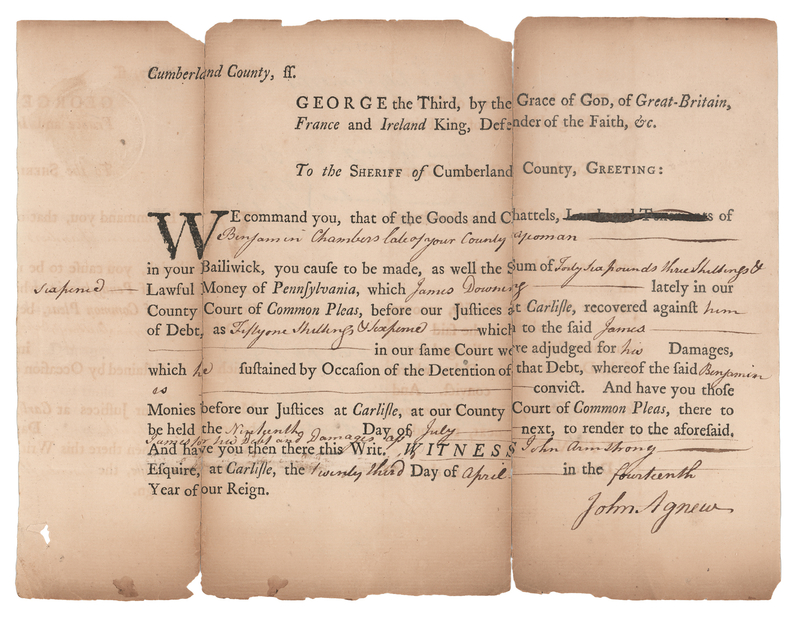 Cumberland County, ss.
GEORGE the Third, by the Grace of GOD, of Great-Britain,
France and Ireland King, Defender of the Faith, &c.
To the SHERIFF of Cumberland County, GREETING:
WE command you, that of the Goods and Chattels, of
Benjamin Chambers late of your County yeoman
in your Bailiwick, you cause to be made, as well the Sum of Forty six pounds three Shillings &
sixpence Lawful Money of Pennsylvania, which James Downing lately in our
County Court of Common Pleas, before our Justices at Carlisle, recovered against him
of Debt, as Fifty one Shillings & Sixpence which to the said James
in our same Court were adjudged for his Damages,
which he sustained by Occasion of the Detention of that Debt, whereof the said Benjamin
is convict. And have you those
Monies before our Justices at Carlisle, at our County Court of Common Pleas, there to
be held the Nineteenth Day of July next, to render to the aforesaid,
James for his Debt and Damages
And have you then there this Writ. WITNESS John Armstrong
Esquire, at Carlisle, the twenty third Day of April in the fourteenth
Year of our Reign.
John Agnew